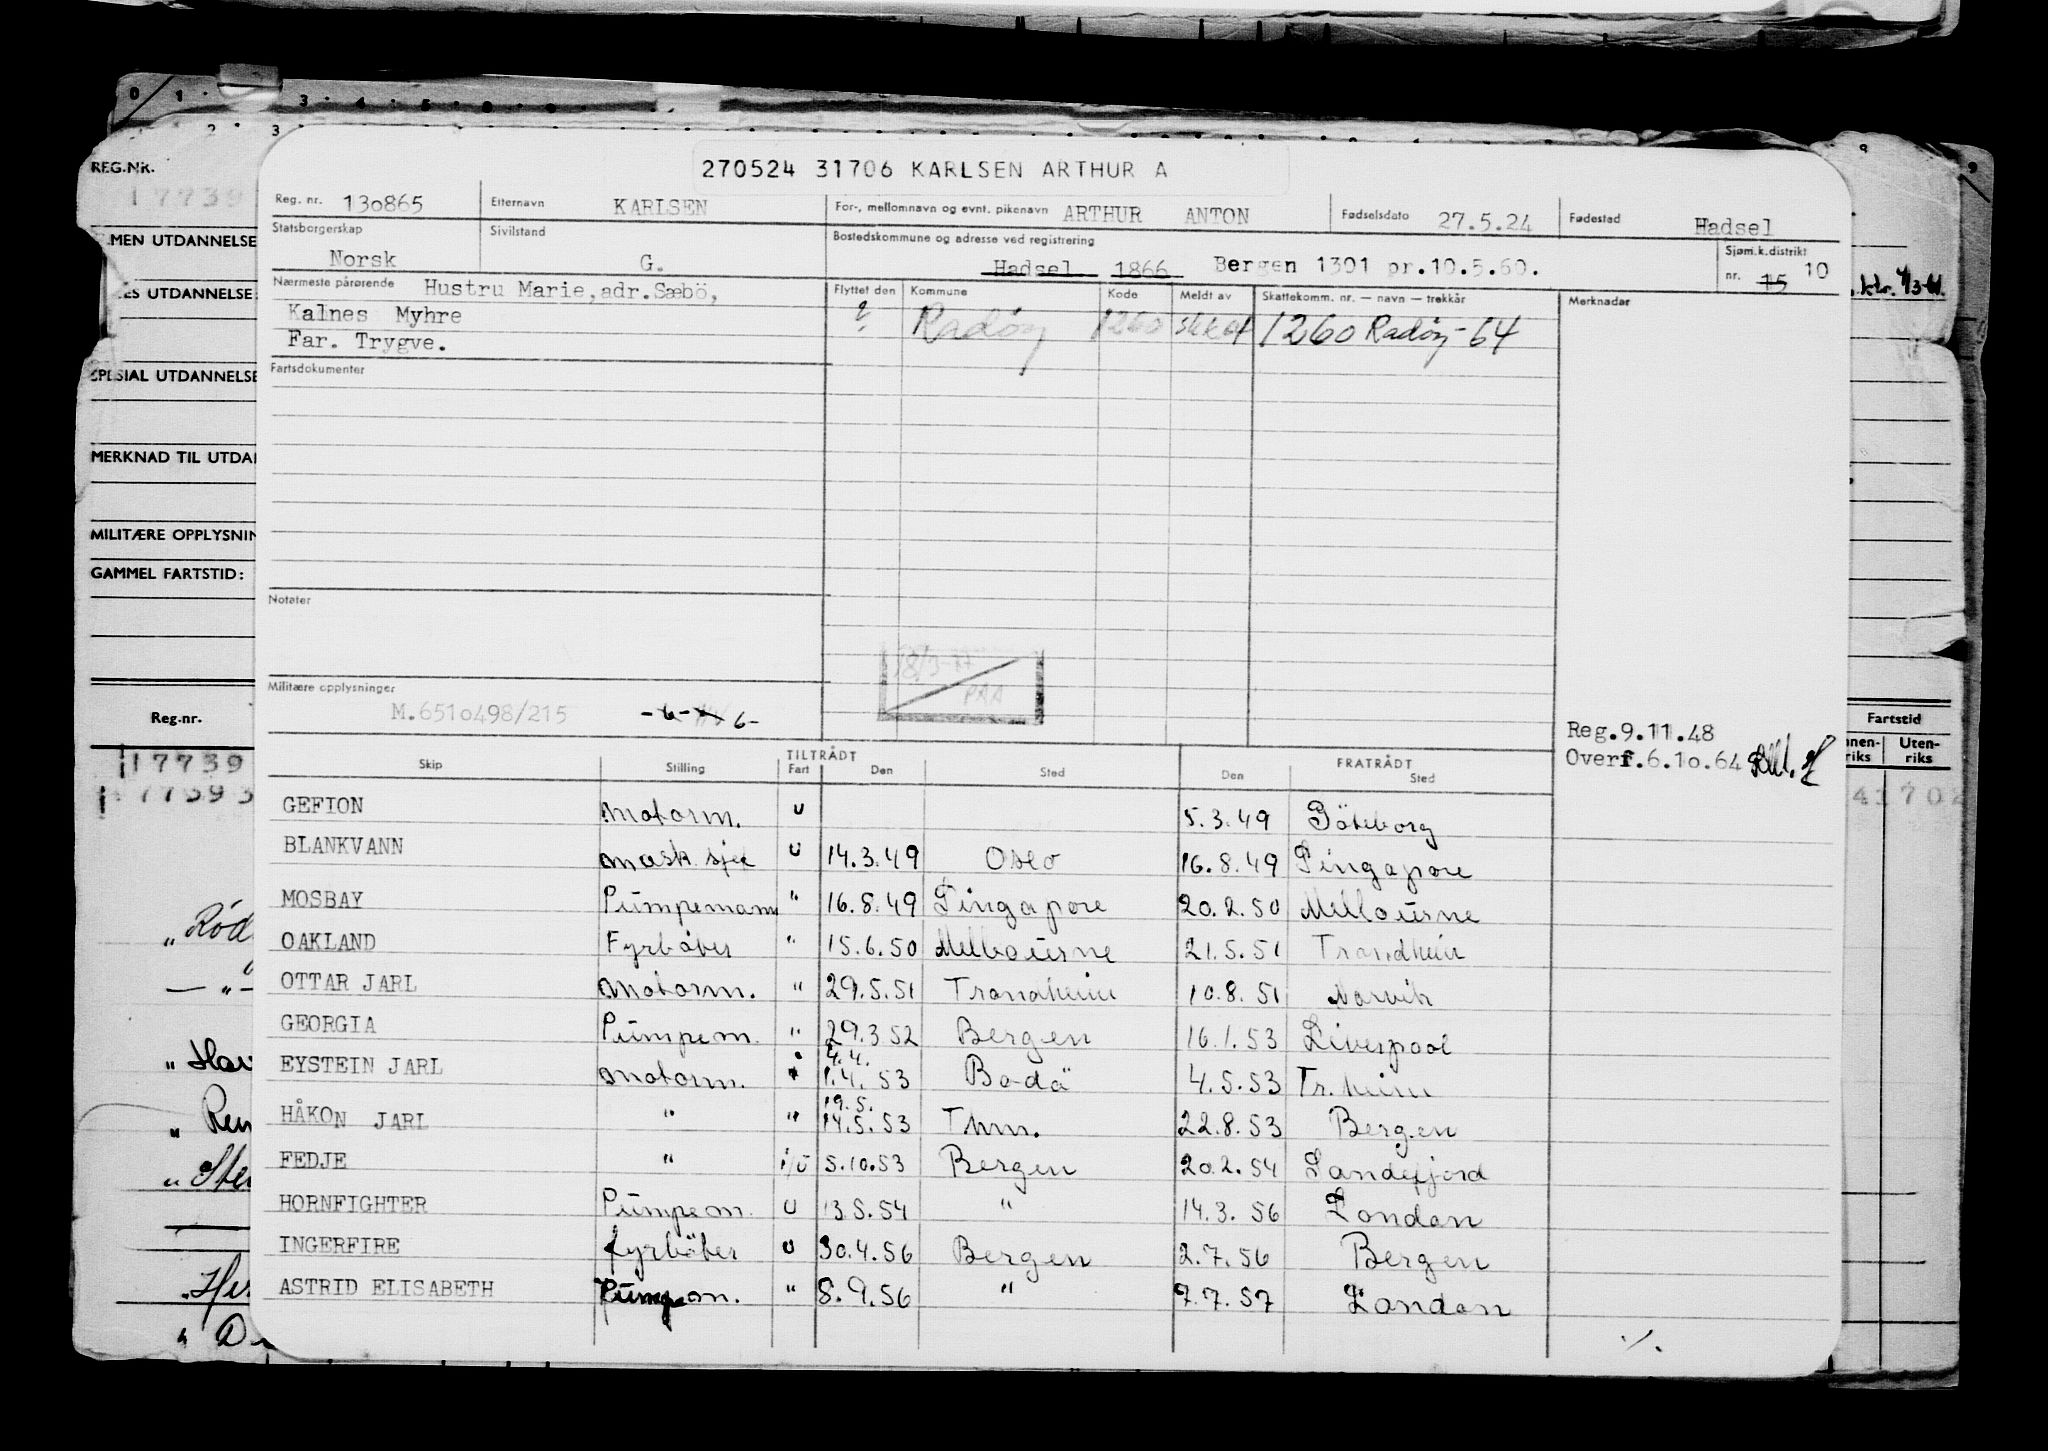 0 1 3 4 5
2 3
9
9
REG.NR.
17739
270524 31706 KARLSEN ARTHUR A
Reg. nr. 130865 Etternavn KARLSEN For-, mellomnavn og evnt. pikenavn ARTHUR ANTON Fødselsdato 27.5.24 Fødested Hadsel
Statsborgerskap Norsk Sivilstand G. Bostedskommune og adresse ved registrering Hadsel 1866 Bergen 1301 pr.10.5.60. Sjøm.k.distrikt nr. 15 10
MEN UTDANNELSE
Nærmeste pårørende Hustru Marie,adr.Sæbö, Flyttet den Kommune Kode Meldt av Skattekomm. nr. — navn — trekkår Merknader
ES UTDANNELSE:
Kalnes Myhre ? Radöy 1260 skkat 1260 Radöy-64
Far. Trygve.
Fartsdokumenter
SPESIAL UTDANNELSE
MERKNAD TIL UTDA
MILITÆRE OPPLYSNIN
GAMMEL FARTSTID:
Notater
18/3-77
PAA
Militære opplysninger
M.6510498/215 -6- 6-
Reg.9.11.48
Overf.6.10.64
Reg.-nr.
Fartstid
nnen-riks Uten-riks
Skip Stilling TILTRÅDT Fart Den Sted FRATRÅDT Den Sted
17739
17393
41702
GEFION Motorm. U 5.3.49 Göteborg
BLANKVANN mask. sjef U 14.3.49 Oslo 16.8.49 Singapore
MOSBAY Pumpemann " 16.8.49 Singapore 20.2.50 Melbourne
OAKLAND Fyrböter " 15.6.50 Melbourne 21.5.51 Trondheim
OTTAR JARL Motorm. " 29.5.51 Trondheim 10.8.51 Narvik
GEORGIA Pumpem. " 29.3.52 Bergen 16.1.53 Liverpool
4.4.
EYSTEIN JARL Motorm. 1.4.53 Bodö 4.5.53 Tr.heim
19.5.
HÅKON JARL " " 14.5.53 Thm. 22.8.53 Bergen
FEDJE " i/U 5.10.53 Bergen 20.2.54 Sandefjord
HORNFIGHTER Pumpem. U 13.5.54 " 14.3.56 London
INGERFIRE fyrböter U 30.4.56 Bergen 2.7.56 Bergen
ASTRID ELISABETH Pumpem. " 8.9.56 " 7.7.57 London
./.
" Rød
— " —
" Hav
" Ren
" Ste